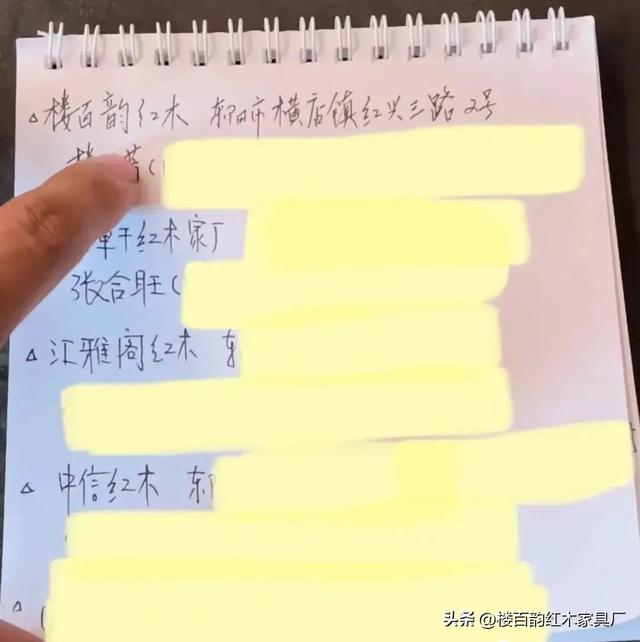 △楼百韵红木 东阳市横店镇红兴三路2号
楼
红木家厂
张合旺(
△汇雅阁红木 东
△中信红木 东阳
△
头条 @楼百韵红木家具厂